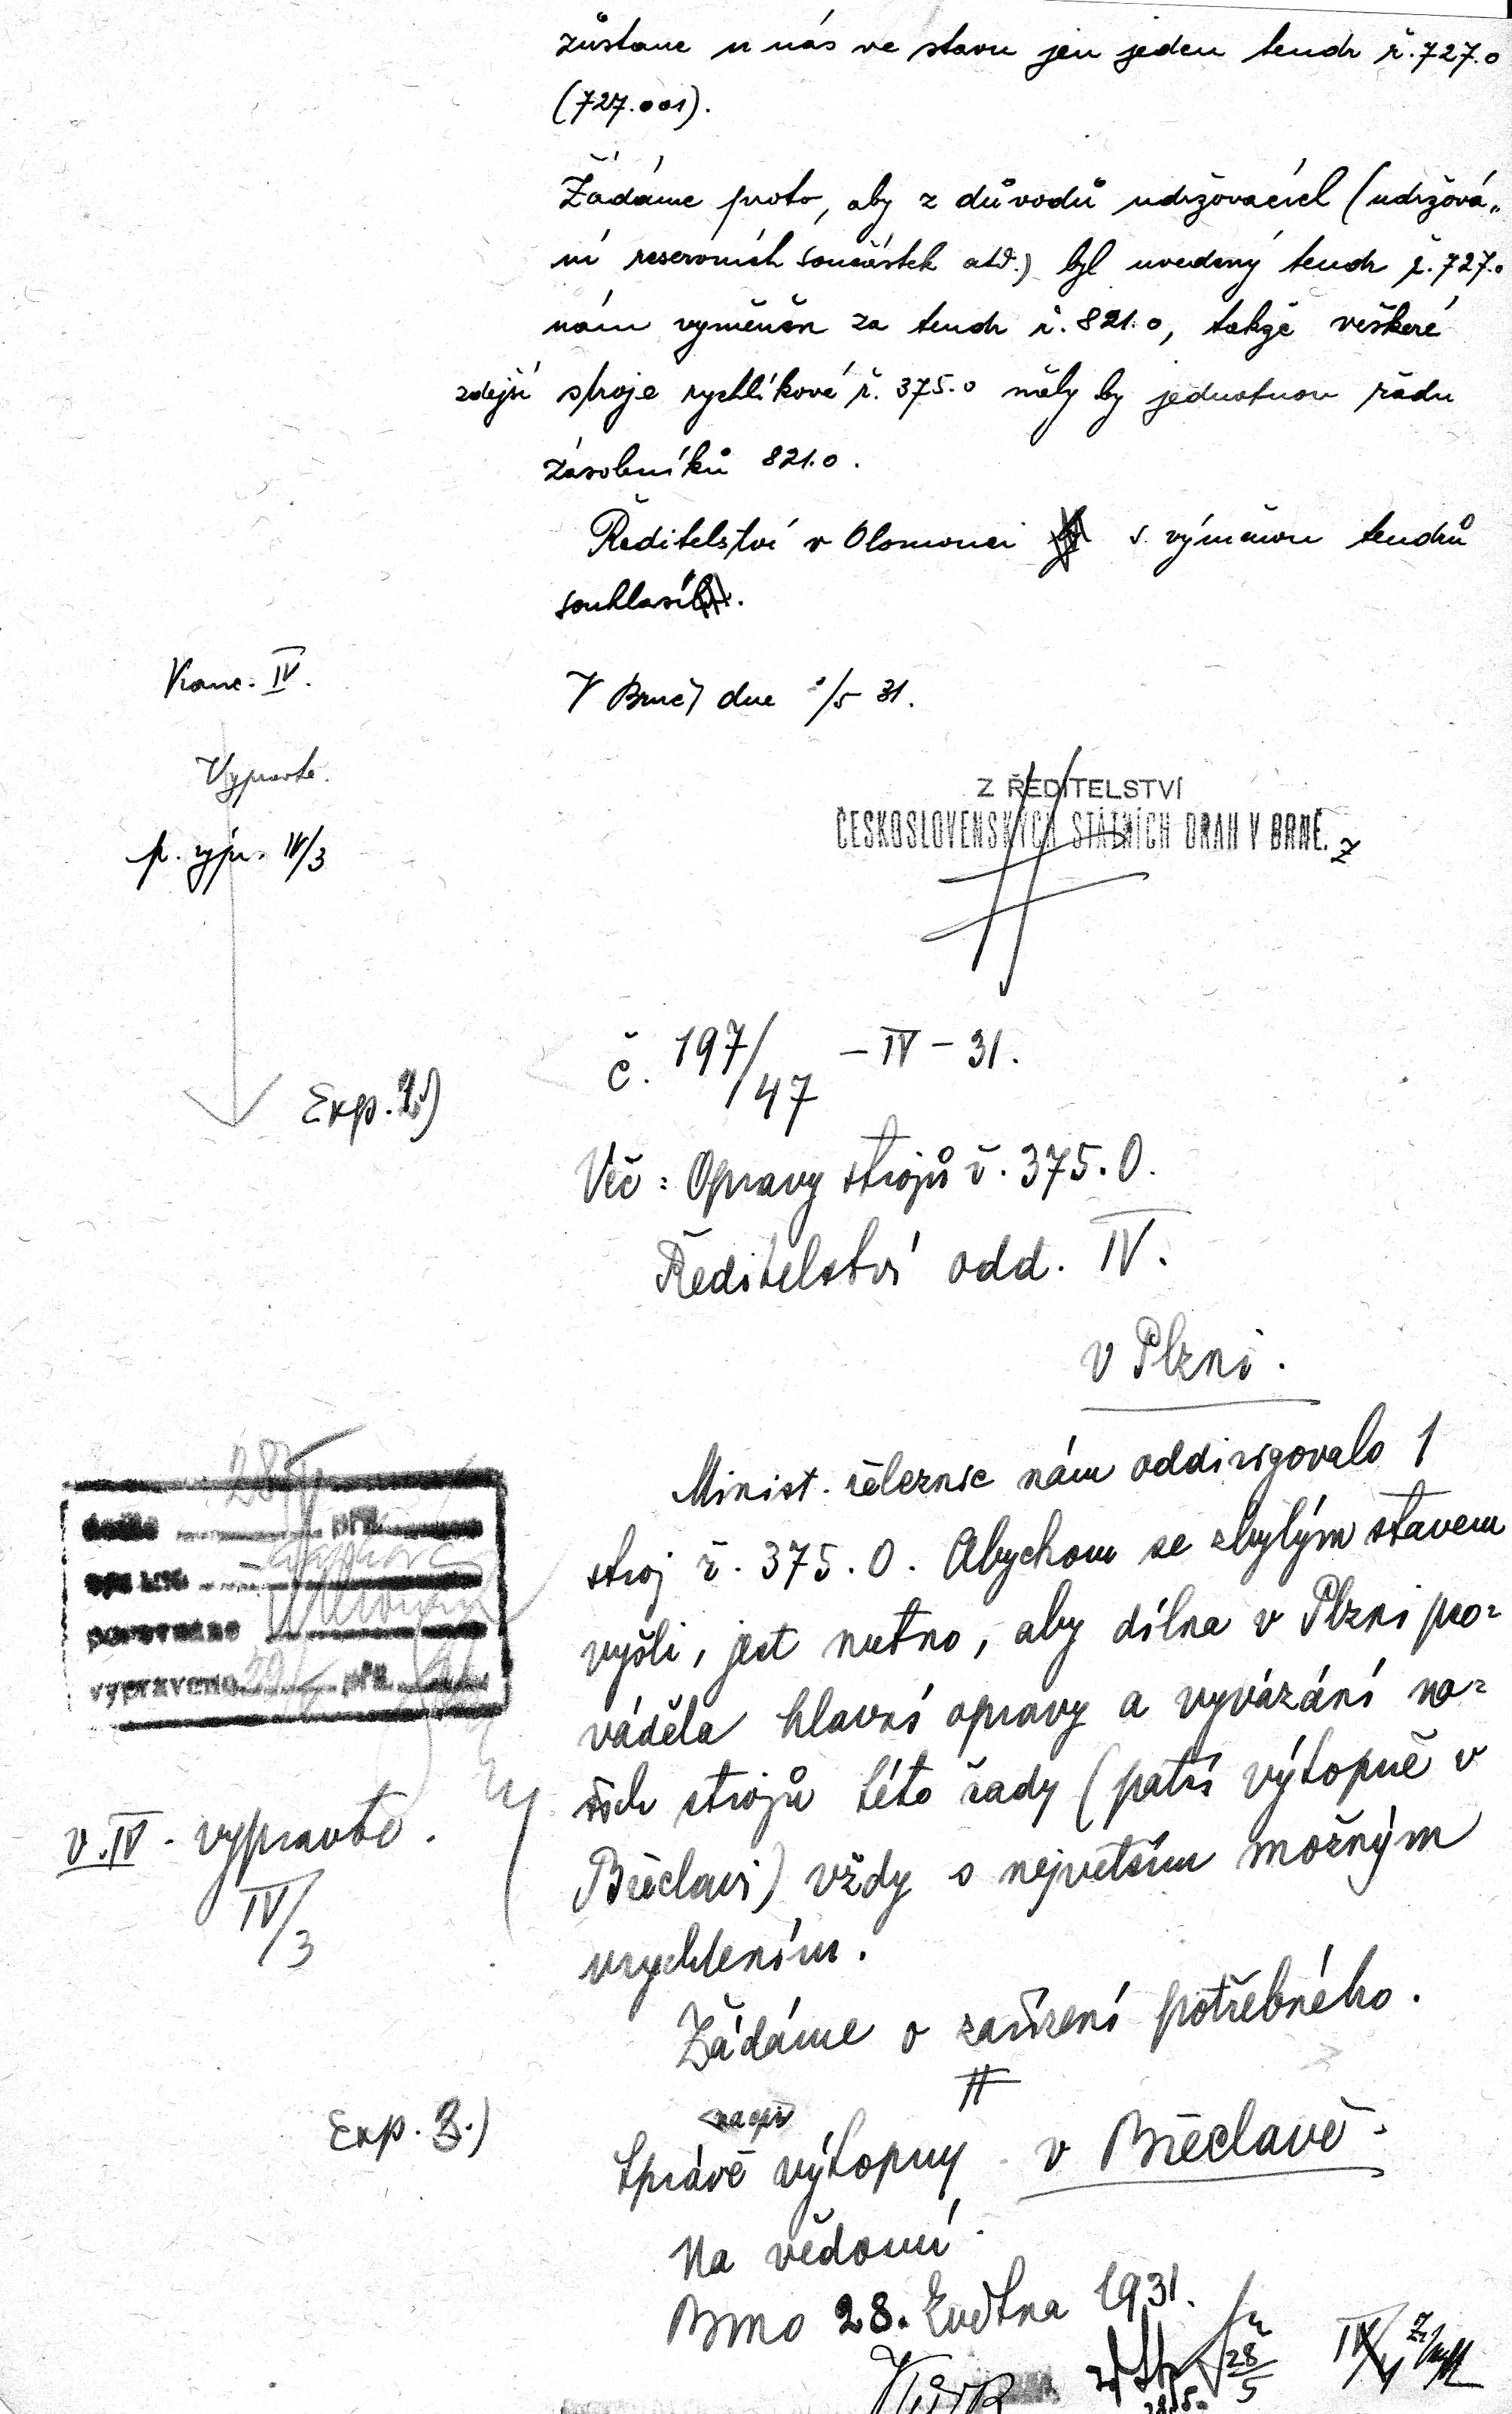 zůstane u nás ve stavu jen jeden tendr ř. 727.0
(727.001).
Žádáme proto, aby z důvodů udržovacích (udržová„
ní reservních součástek atd.) byl uvedený tendr ř. 727.0
nám vyměněn za tendr ř. 821.0, takže veškeré
zdejší stroje rychlíkové ř. 375.0 měly by jednotnou řadu
zásobníků 821.0.
Ředitelství v Olomouci s výměnou tendrů
souhlasí.
Kanc. IV.
V Brně, dne /5 31.
Vypravte.
Z ŘEDITELSTVÍ
ČESKOSLOVENSKÝCH STÁTNÍCH DRAH V BRNĚ.
p. výpr. IV/3
č. 197/47 – IV – 31.
Exp. 2.)
Věc: Opravy strojů ř. 375.0.
Ředitelství odd. IV.
v Plzni.
Minist. železnic nám oddirigovalo 1
stroj ř. 375.0. Abychom se zbylým stavem
vyšli, jest nutno, aby dílna v Plzni pro=
váděla hlavní opravy a vyvázání na=
šich strojů této řady (patří výtopně v
Břeclavi) vždy s největším možným
urychlením.
došlo 28/V př.
opsáno
porovnáno
vypraveno 29/ př.
v. IV. vypravte.
IV/3
Žádáme o zařízení potřebného.
Exp. 3.)
napiš
Správě výtopny v Břeclavě.
Na vědomí.
Brno 28. května 1931.
28/5
28/5.